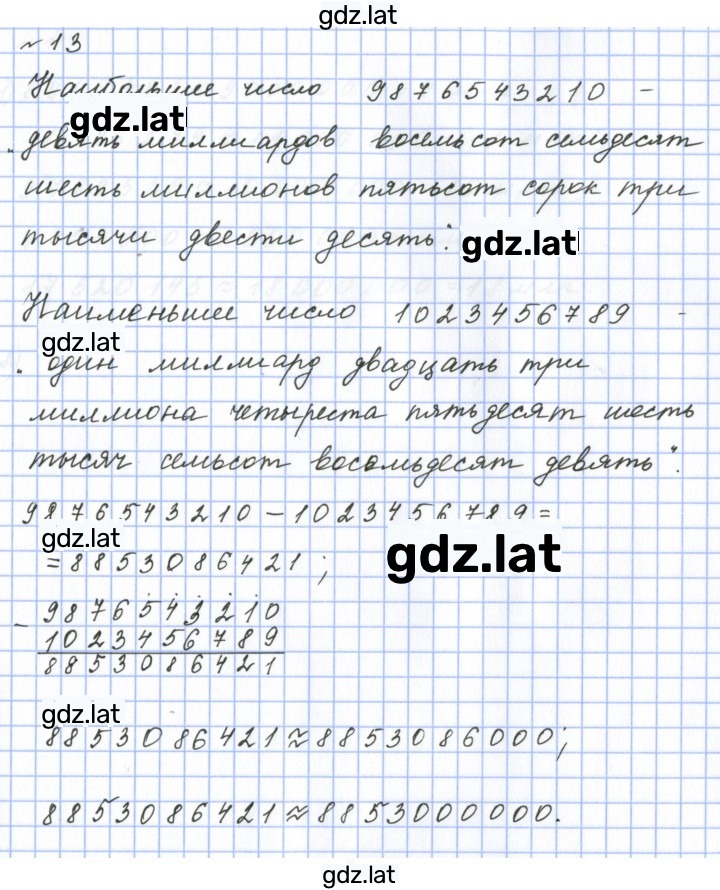 gdz.lat
№13
Наибольшее число 9876543210 –
gdz.lat
„девять миллиардов восемьсот семьдесят
шесть миллионов пятьсот сорок три
тысячи двести десять".
gdz.lat
Наименьшее число 1023456789 -
gdz.lat
„один миллиард двадцать три
миллиона четыреста пятьдесят шесть
тысяч семьсот восемьдесят девять".
9876543210 – 1023456789 =
gdz.lat
= 8853086421;
gdz.lat
– 9876543210
1023456789
8853086421
gdz.lat
8853086421 ≈ 8853086000;
8853086421 ≈ 8853000000.
gdz.lat